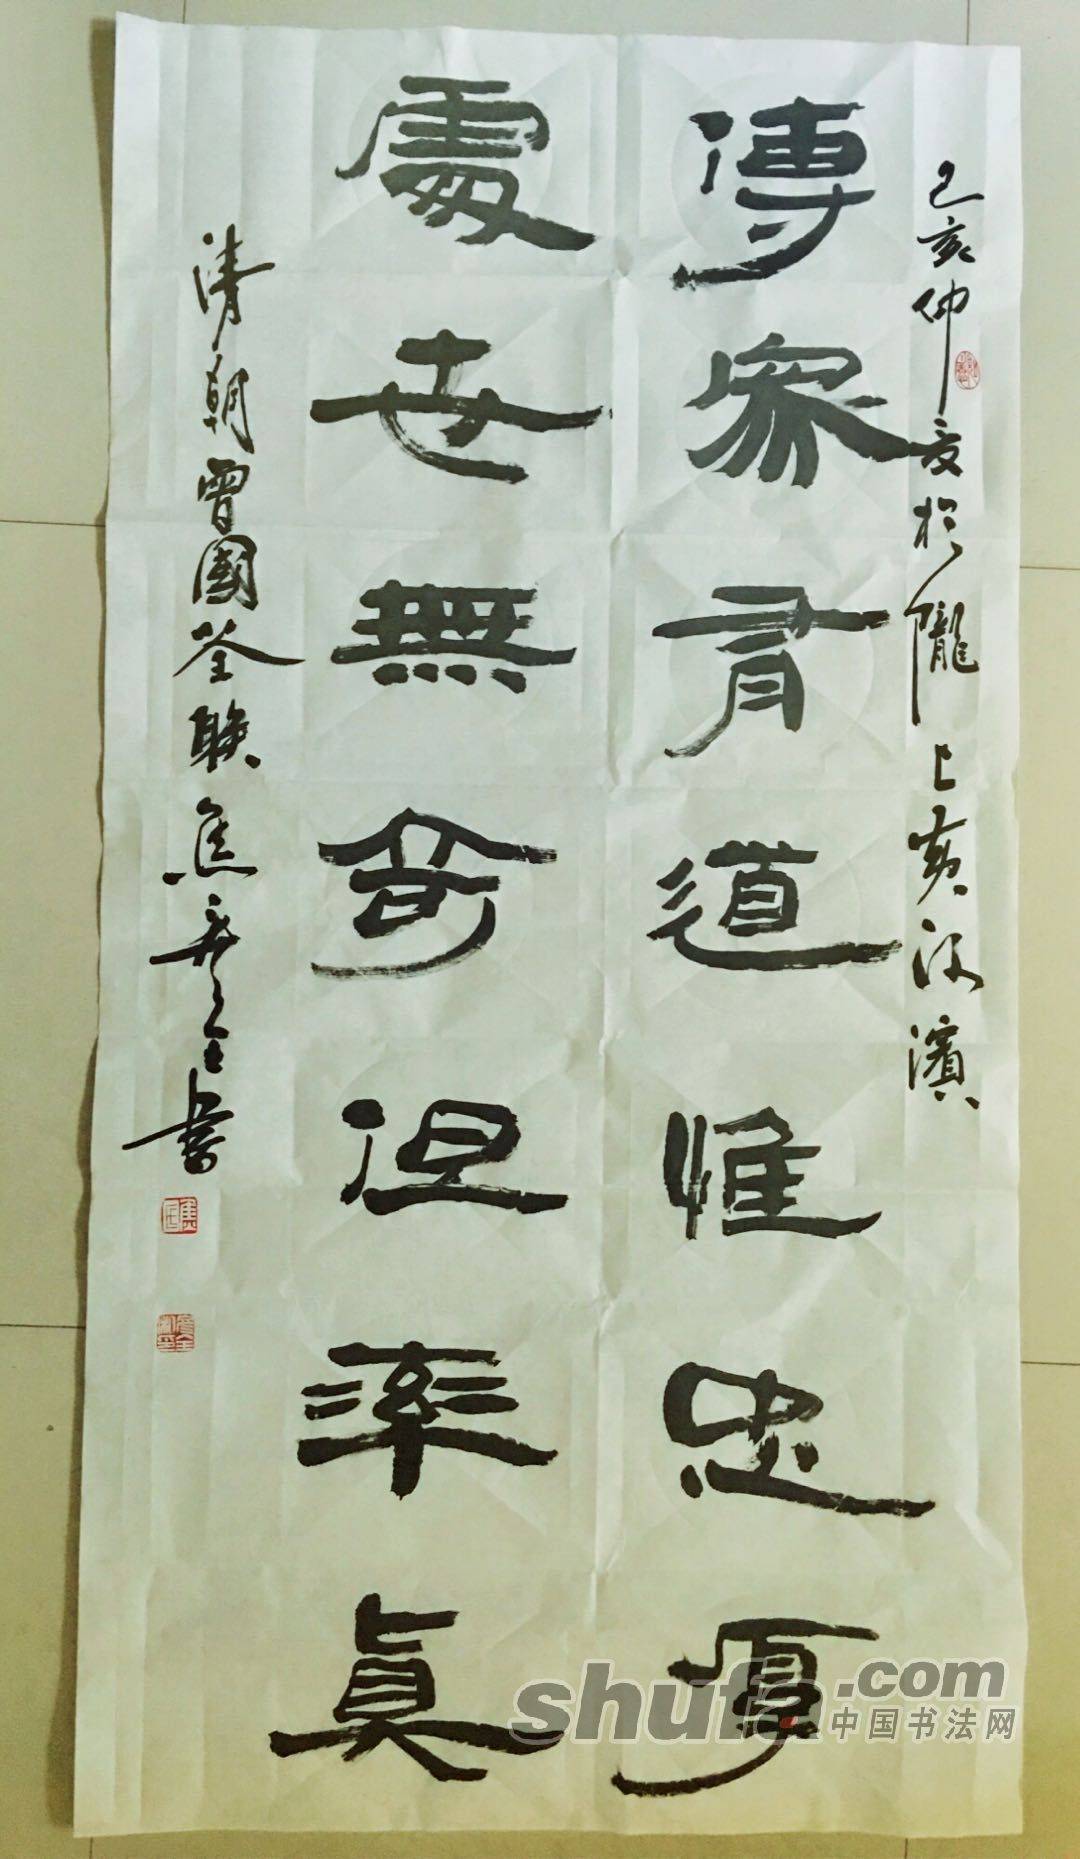 己亥仲夏於隴上黄河濱
傳家有道惟忠厚
處世無奇但率真
清朝曾國荃联焦彦全書
shufa.com
中国书法网